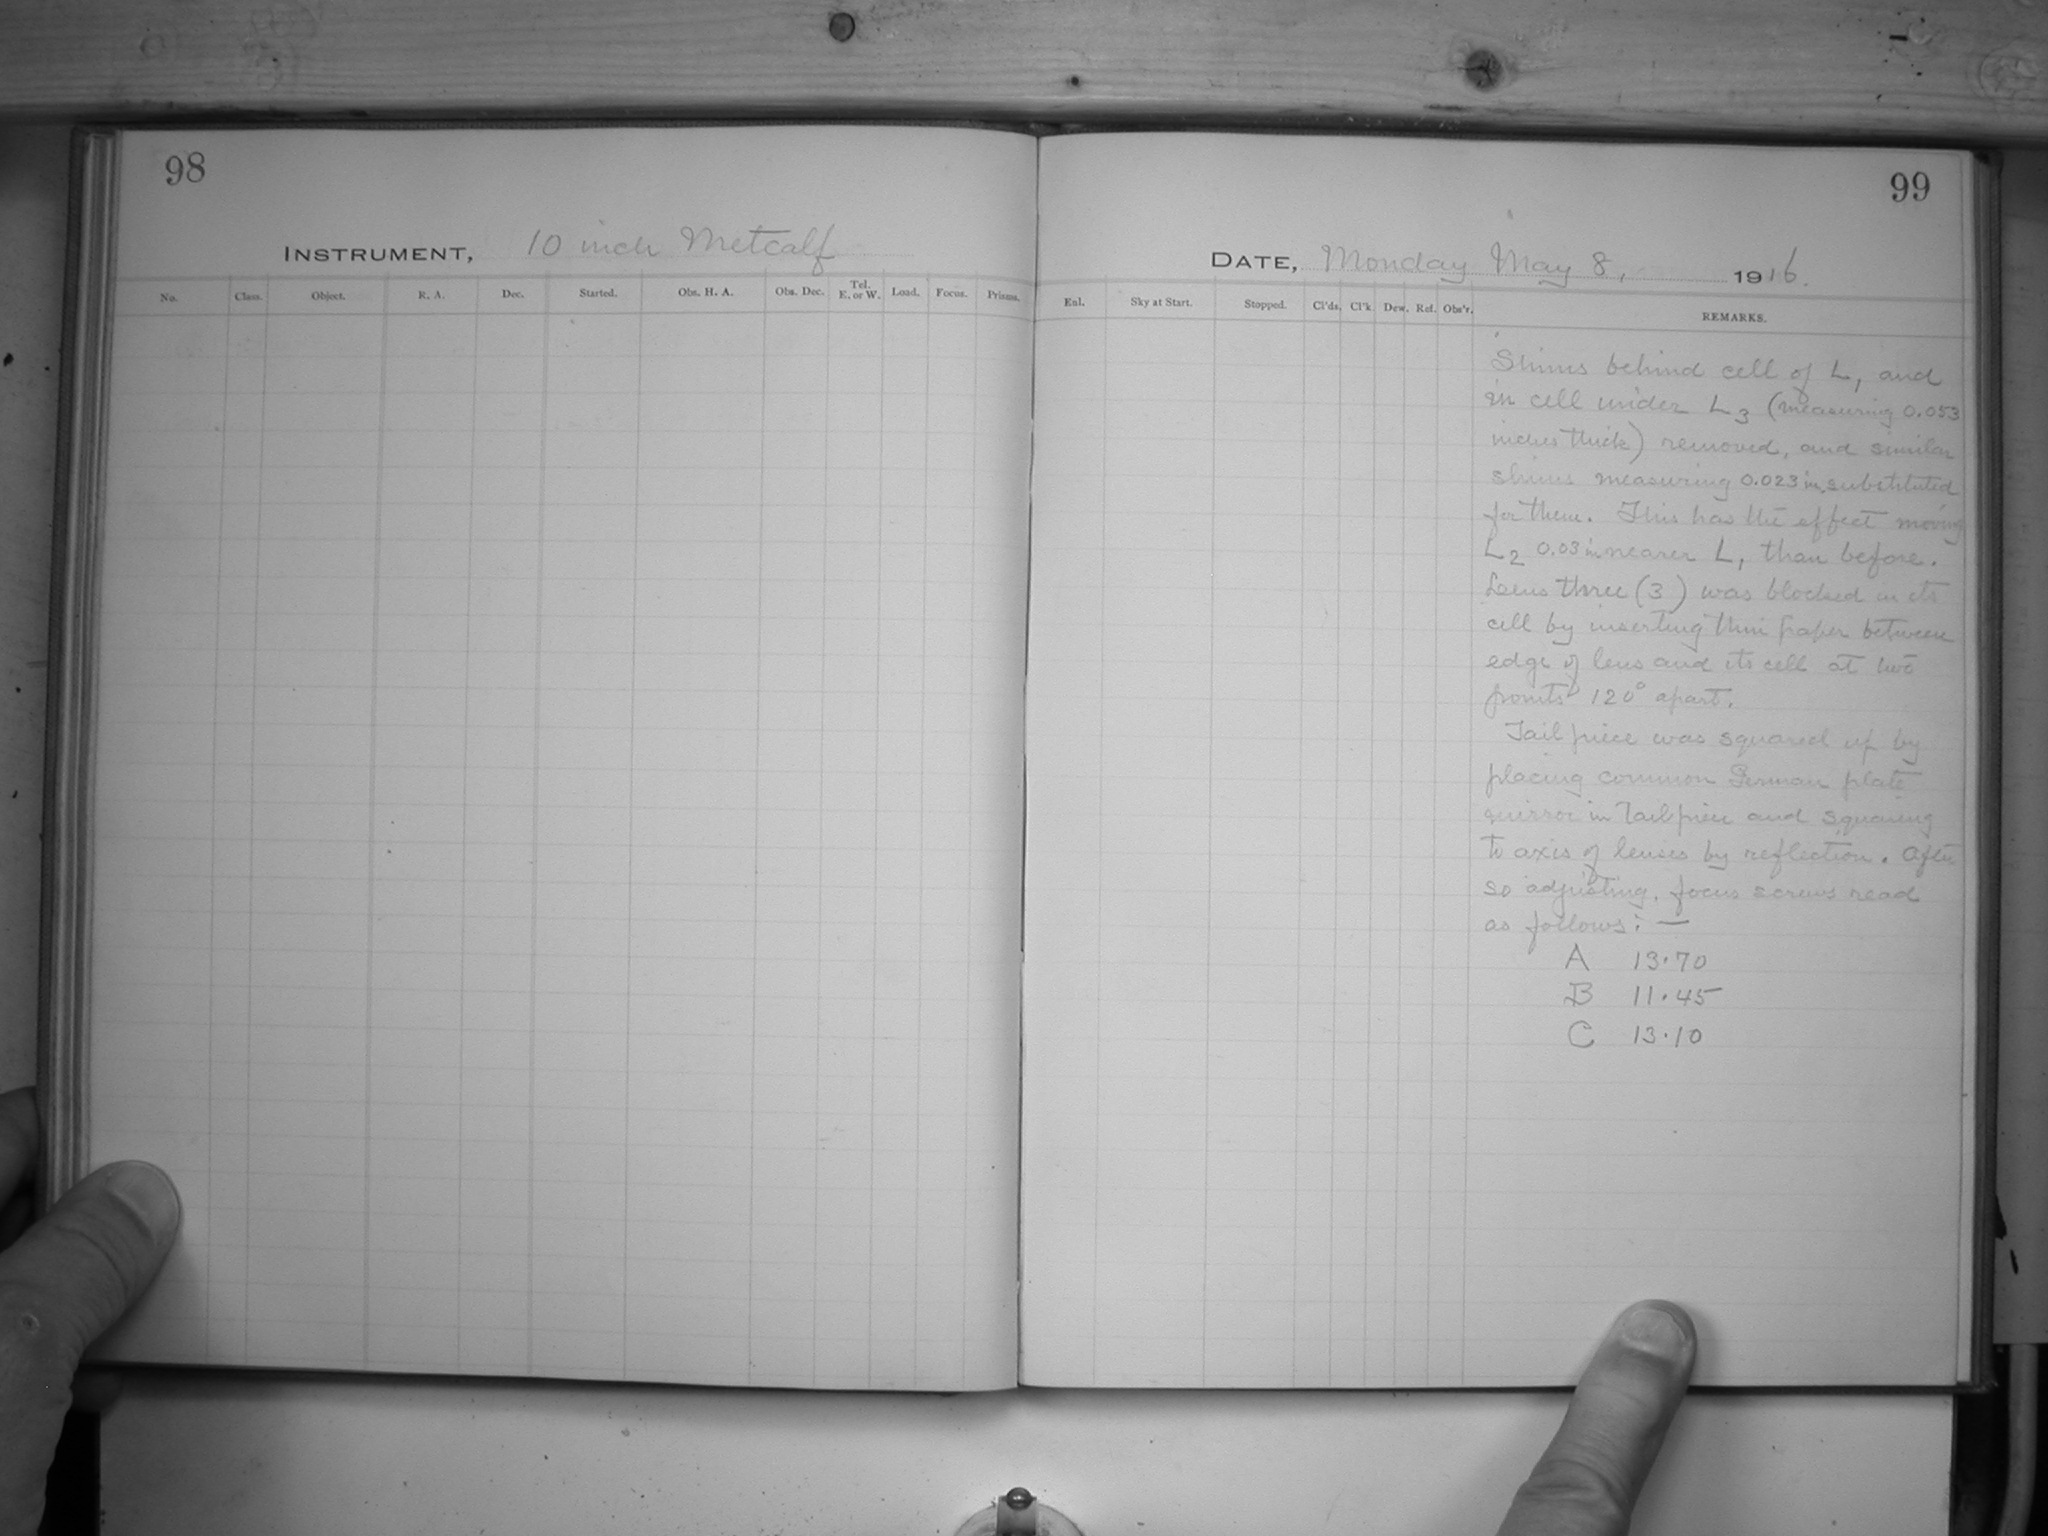 98
INSTRUMENT, 10 inch Metcalf
No. Class. Object. R. A. Dec. Started. Obs. H. A. Obs. Dec. Tel. E. or W. Load. Focus. Prisms.
99
DATE, Monday May 8, 1916.
Enl. Sky at Start. Stopped. Cl'ds. Cl'k. Dew. Ref. Obs'r. REMARKS.
Shims behind cell of L1 and
in cell under L3 (measuring 0.053
inches thick) removed, and similar
shims measuring 0.023 in. substituted
for them. This has the effect moving
L2 0.03 in nearer L1 than before.
Lens three (3) was blocked in its
cell by inserting thin paper between
edge of lens and its cell at two
points 120° apart.
Tailpiece was squared up by
placing common German plate
mirror in Tailpiece and squaring
to axis of lenses by reflection. After
so adjusting, focus screws read
as follows: —
A 13.70
B 11.45
C 13.10